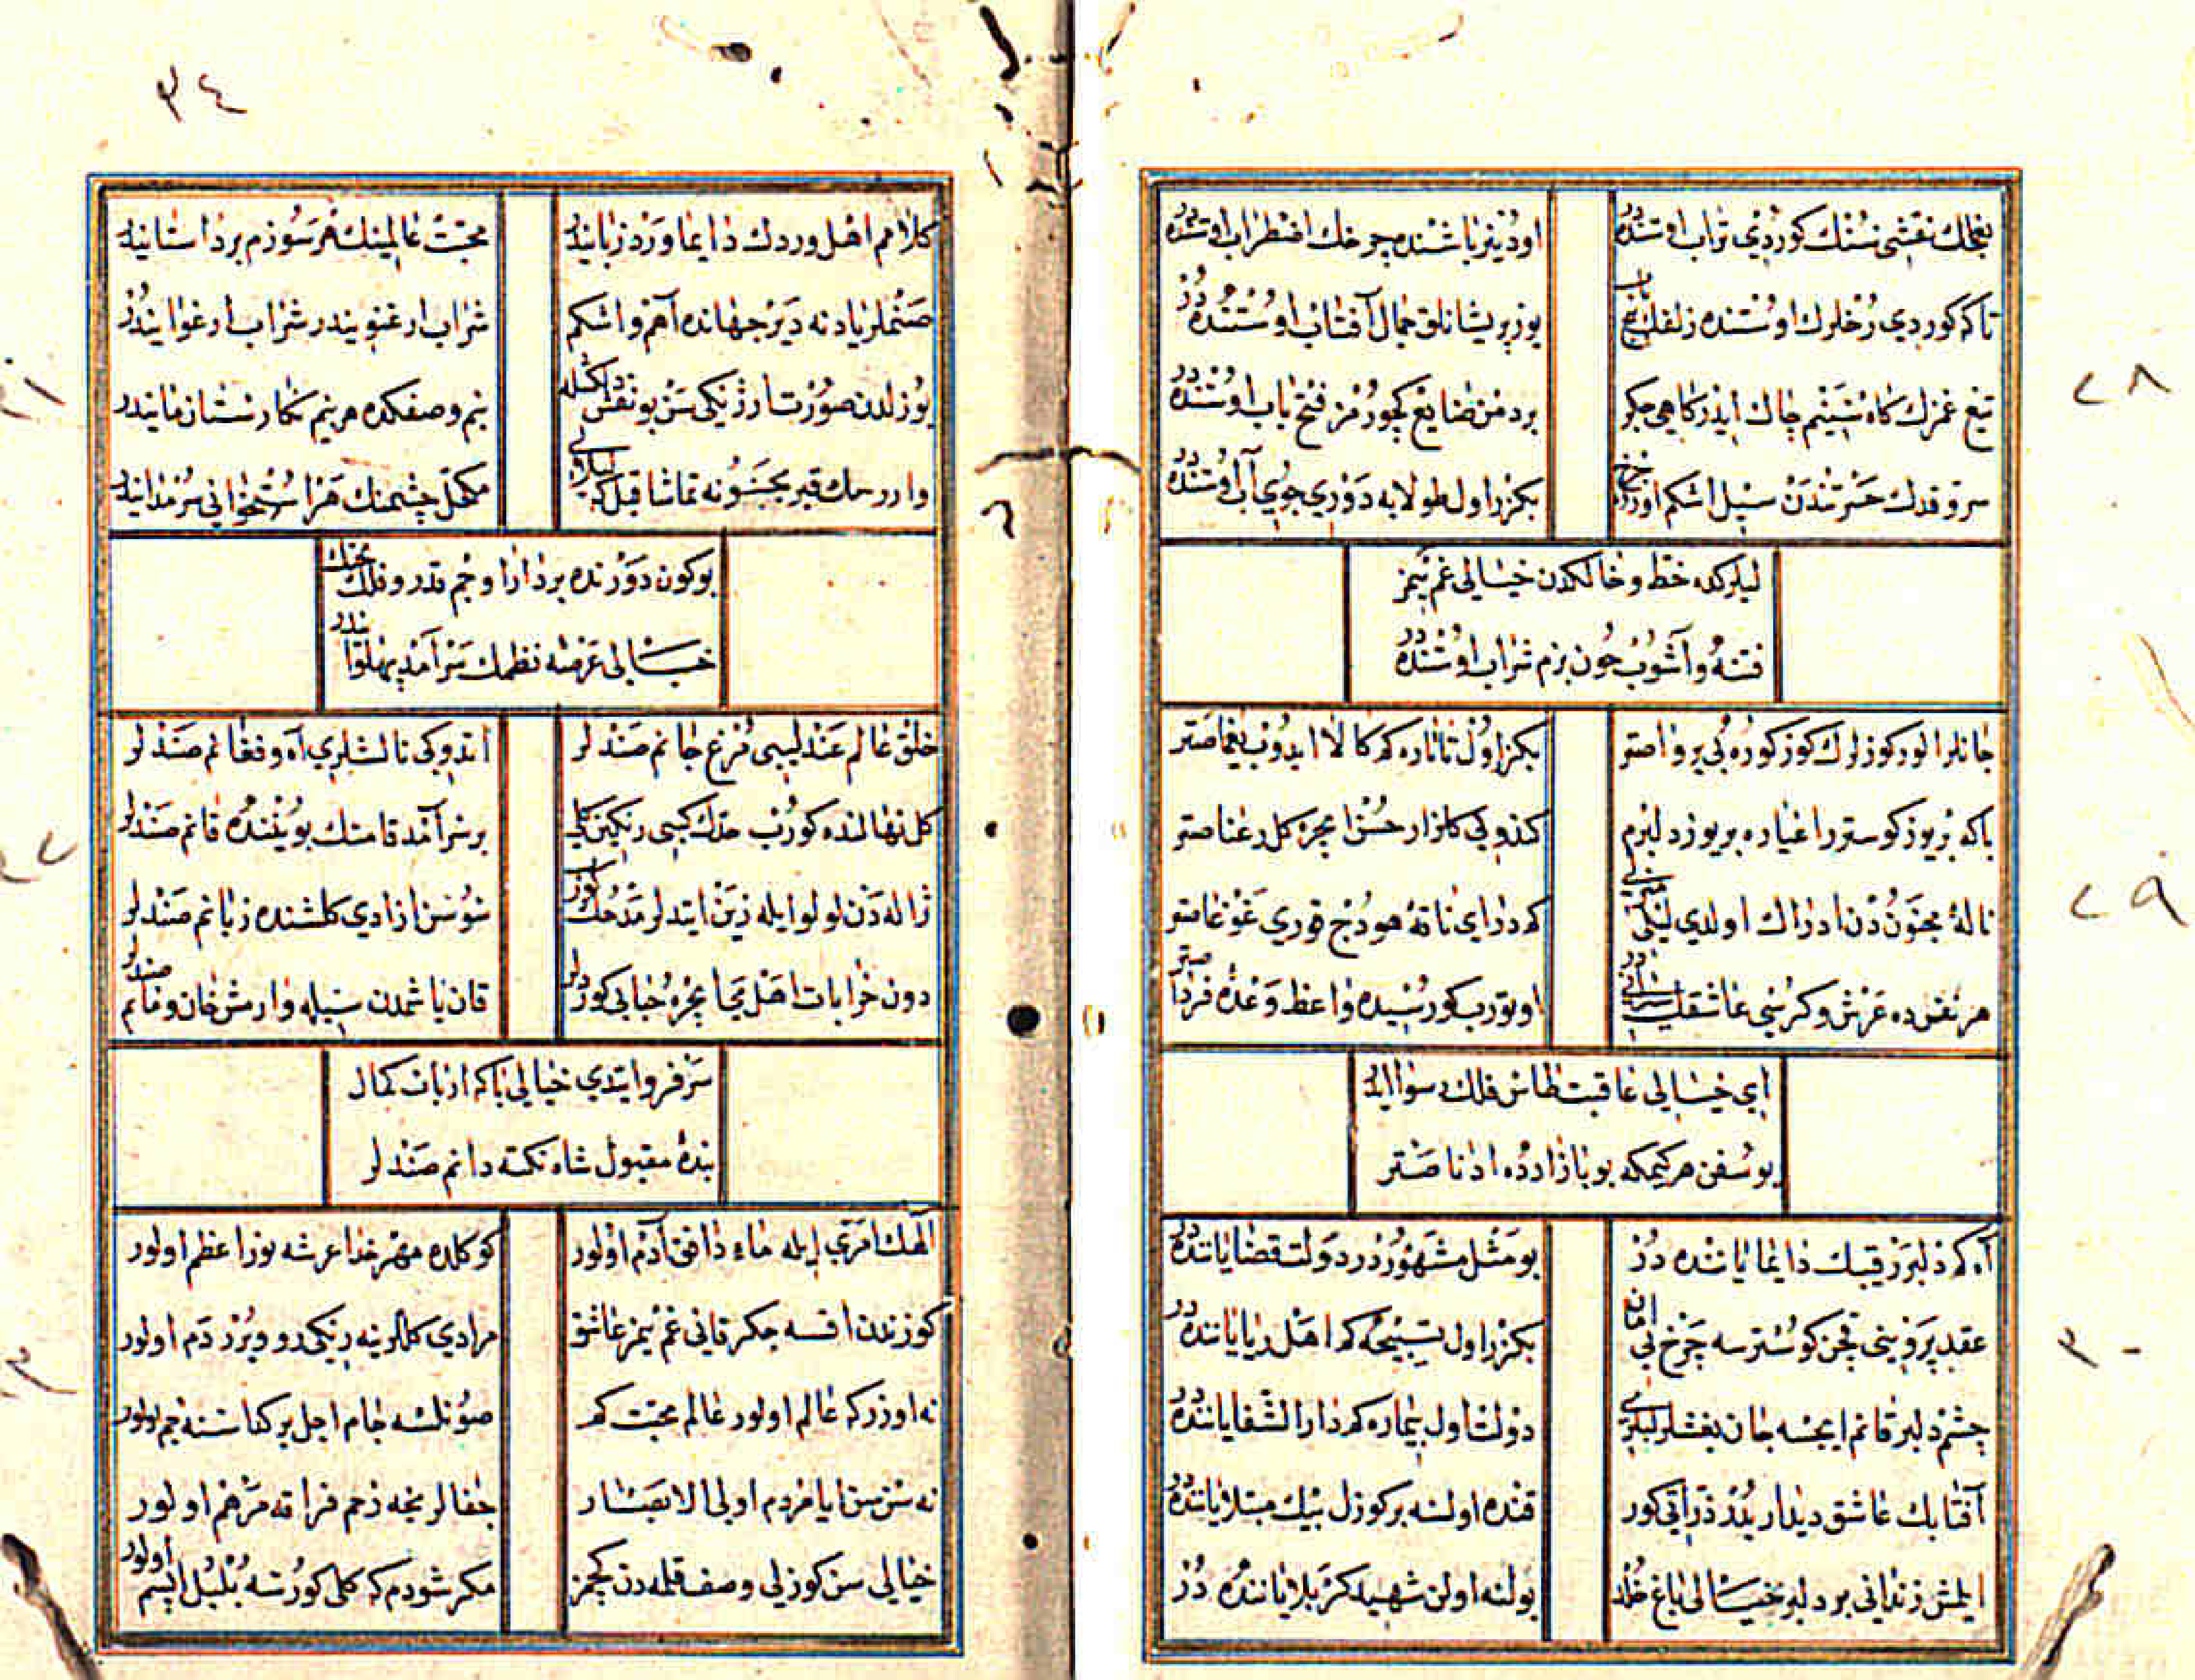 اودنیر باشنده چرخك اضطراب اوستنده در
تاکه کوردی رخلرك اوستنده زلفك
یوز پریشانلق جمال آفتاب اوستنده در
تیغ غمزك کاه سینیم چاك ایدر کاهی جکر
بر دمن ضایع کچورمز فتح باب اوستنده در
سرو قدك حسرتندن سیل اشکم اوزره چرخ
بکزر اول طولابه دوری جوی آب اوستنده در
لیلرکده خط و خالکدن خیالی غم یمز
فتنه و آشوب چون بزم شراب اوستنده در
٢٨
جانلر الور کوزلرك کوز کوره بی پروا صتر
بکزر اول تاتاره کم کالا ایدوب یغما صتر
باکه بر یوز کوستر اغیاره بر یوز دلبرم
کندوکی کلزار حسن ایچره کل رعنا صتر
نالهٔ مجنوندن ادراك اولدی لیلی
که درای ناقهٔ هودج قوری غوغا صتر
هر نفس ده عرش و کرسی عاشقك سیرانی در
اوتورب کورسیده واعظ وعدهٔ فردا صتر
ای خیالی عاقبت طاس فلك رسوا ایدر
یوسفن هر کیمکه بو بازارده ادنا صتر
٢٩
آه که دلبر رقیبك دایما یاننده در
بو مثل مشهور در دولت قضا یاننده در
عقد پروینی قچن کوسترسه چرخ بی امان
بکزر اول تسبیحه کم اهل ریا یاننده در
چشم دلبر قانم ایچسه جان بغشلر لبلری
دولت اول بیماره کم دار الشفا یاننده در
آفتابك عاشق دیدار یدر ذراتی کور
قنده اولسه بر کوزل بیك مبتلا یاننده در
ایلمش زندانی بر دلبر خیالی باغ خلد
بولنه اولن شهید کربلا یاننده در
٣٠
٣٤
کلامم اهل دردك دایما ورد زبانیدر
محبت عالمینك هر سوزم بر داستانیدر
صنملر یادنه دیر جهانده آهم و اشکم
شراب ارغنویندر شراب ارغوانیدر
یوزلدن صورت ارژنکی سن بو نقش
بنم وصفکده هر بیتم نکارستان مانیدر
وار رسمك قبر مجنونه تماشا قیل که
مکحل چشمنك هر استخوانی سرمه دانیدر
بوکون دورنده بر دارا و جم قدر و فلك
خیالی عرصهٔ نظمك سرآمد پهلوانیدر
خلق عالم عندلیبی مرغ جانم صندلر
اتدوکی نالشلری آه و فغانم صندلر
کل نهالنده کورب خدك کبی رنکین کلی
بر سرآمد قامتك بوینینده قانم صندلر
ژاله دن لولو ایله زین ایتدلر مدحك
سوسن ازادی کلشنده زبانم صندلر
دون خرابات اهل می ایچره حبابی کوردلر
قان یاشمدن سیله وارمش خان و مانم صندلر
سر فرو ایتدی خیالی باکه ارباب کمال
بندهٔ مقبول شاه نکته دانم صندلر
الهك امری ایله ماء دافق آدم اولور
کوکلده مهر خدا عرشه نور اعظم اولور
کوزندن اقسه جکر قانی غم یمز عاشق
مرادی کللرینه رنکی رو ویرر دم اولور
نه اوزرکه عالم اولور عالم محبت کم
صونلسه جام اجل بر کداسنه جم اولور
نه سن سن ایا مردم اولی الابصار
جفالر یخه زخم فراقه مرهم اولور
خیالی سن کوزلی وصف قلمه دن کچمز
مکر شو دم که کلی کورسه بلبل ابسم اولور